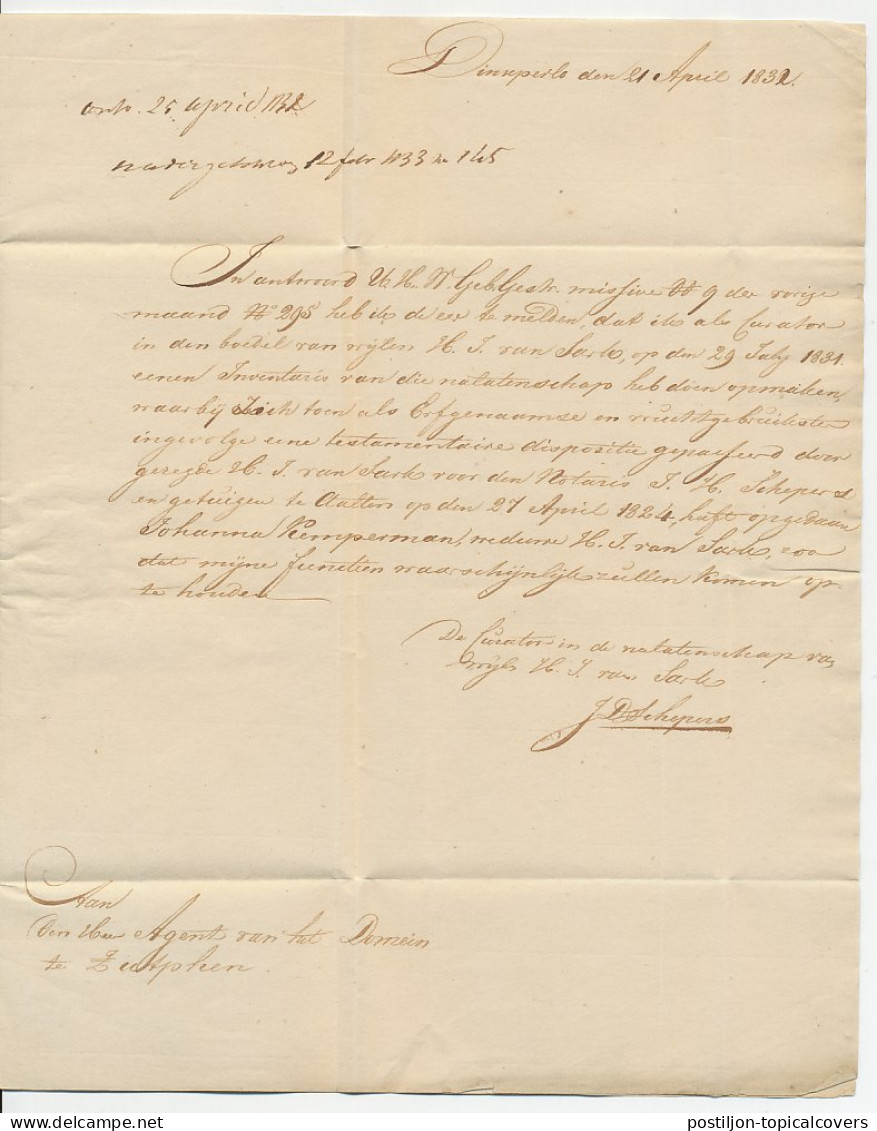 Dinxperlo den 21 April 1832.
antw. 25 april 1832
12 febr 1833 no 145
In antwoord U H. W. Geb. Gestr. missive dd 9 der vorige
maand No 295 heb ik de eer te melden, dat ik als Curator
in den boedel van wijlen H. J. van Sark, op den 29 July 1831.
eenen Inventaris van die nalatenschap heb doen opmaken,
waarbij zich toen als Erfgenaamse en vruchtgebruikster
ingevolge eene testamentaire dispositie gepasseerd door
gezegde H. J. van Sark voor den Notaris J. H. Schepers
en getuigen te Aalten op den 27 April 1824, heeft opgedaan
Johanna Kemperman, weduwe H. J. van Sark, zoo
dat mijne functien waarschijnlijk zullen komen op
te houden
De Curator in de nalatenschap van
wijle H. J. van Sark
J D Schepers
Aan
den Heer Agent van het Domein
te Zutphen.
postiljon-topicalcovers